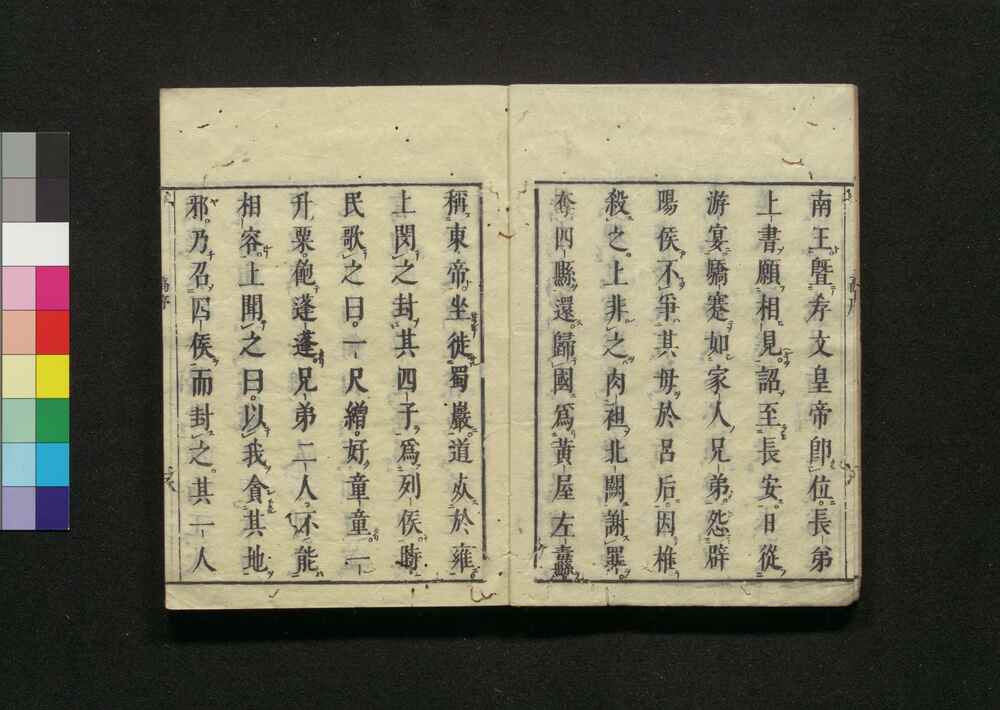 南王曁孝文皇帝卽位長弟
上書願相見詔至長安日從
游宴驕蹇如家人兄弟怨辟
陽侯不爭其母於呂后因椎
殺之上非之肉袒北闕謝罪
奪四縣還歸國爲黃屋左纛
稱東帝坐徙蜀嚴道死於雍
上閔之封其四子爲列侯時
民歌之曰一尺繒好童童一
升粟飽蓬蓬兄弟二人不能
相容上聞之曰以我貪其地
邪乃召四侯而封之其一人